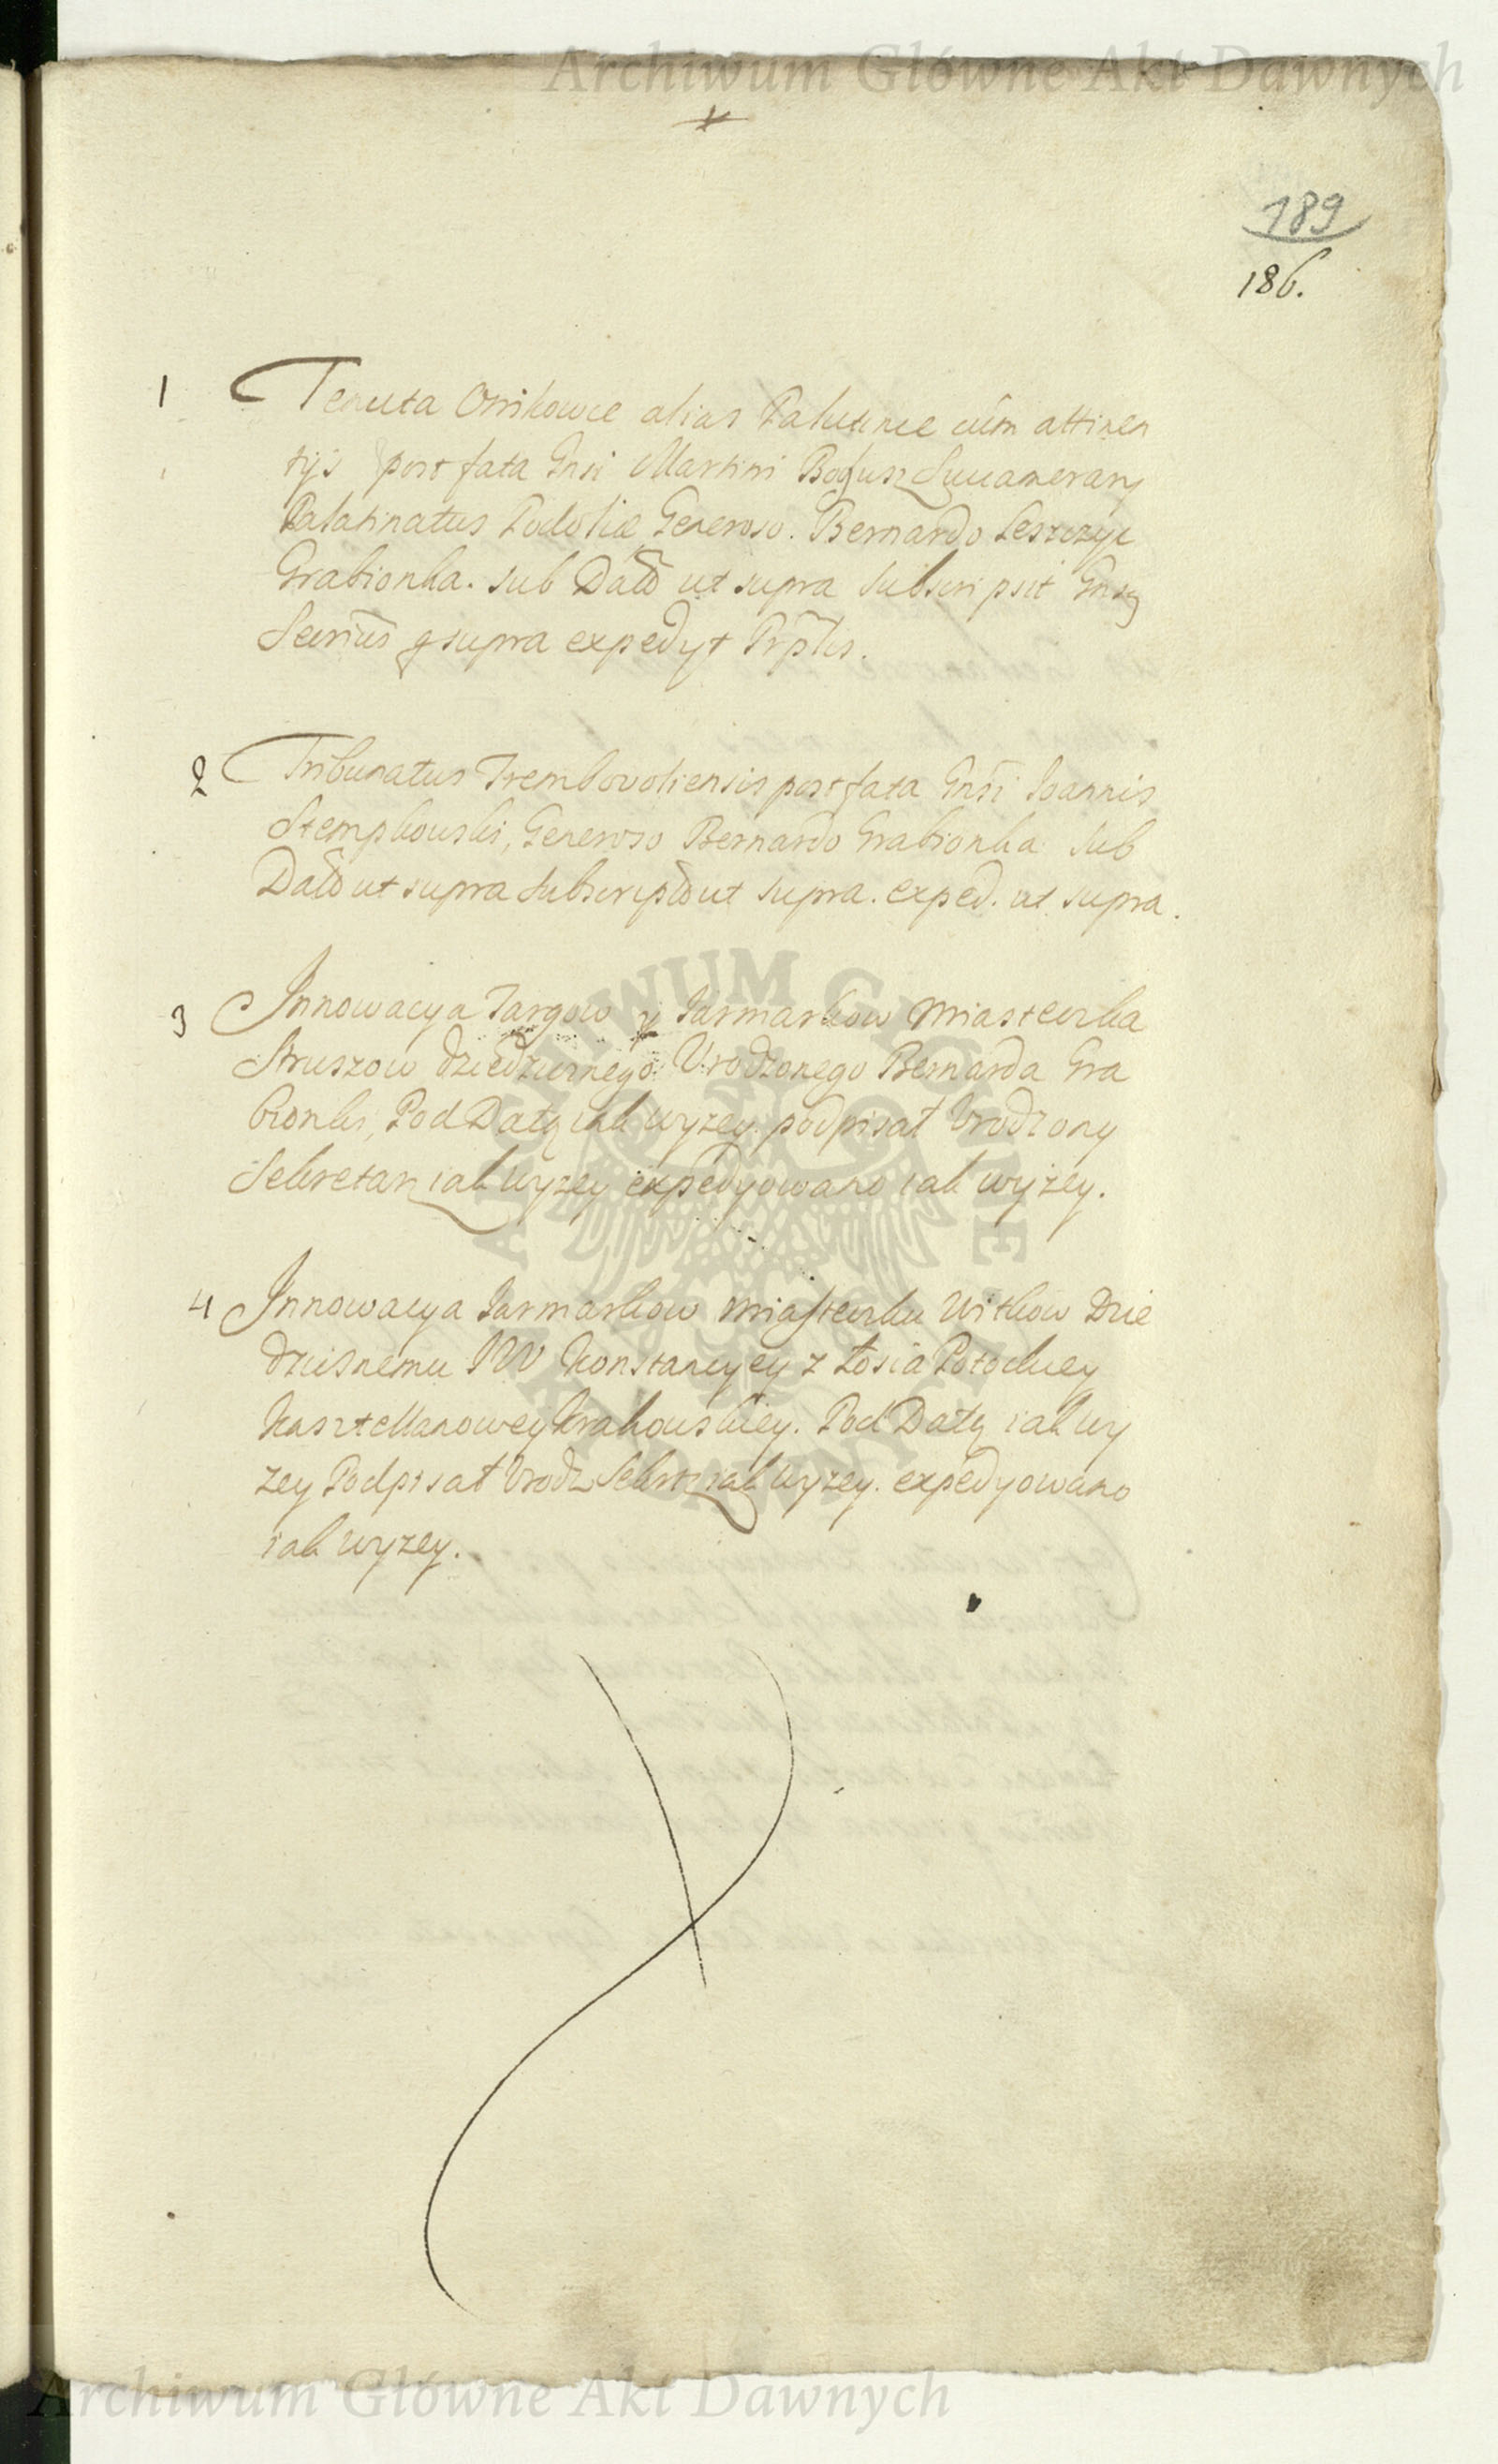 Archiwum Główne Akt Dawnych
189
186.
1 Tenuta Osikowce alias Palutince cum attinen
tijs post fata Gnsi Martini Bogusz Succamerarij
Palatinatus Podoliæ Generoso. Bernardo Leszczyc
Grabionka. sub Datô ut supra subscripsit Gnsus
Secrius q supra expedyt
2 Tribunatus Trembovoliensis post fata Gnsi Ioannis
Stempkouski, Generoso Bernardo Grabionka Sub
Datô ut supra subscriptô ut supra. exped. ut supra.
3 Innowacya Targow y Iarmarkow Miasteczka
Struszow dziedzicznego Urodzonego Bernarda Gra
bionki, Pod Datą iak wyzey podpisał Urodzony
Sekretarz iak wyzey expedyowano iak wyżey.
4 Innowacya Iarmarkow miasteczku Witkow Dzie
dzicznemu JW Konstancyey z Łosia Potockiey
Kasztellanowey Krakouskiey. Pod Datą iak wy
zey Podpisał Urodz Sekrtz iak wyzey. expedyowano
iak wyzey.
ARCHIWUM GŁÓWNE
AKT DAWNYCH
Archiwum Główne Akt Dawnych